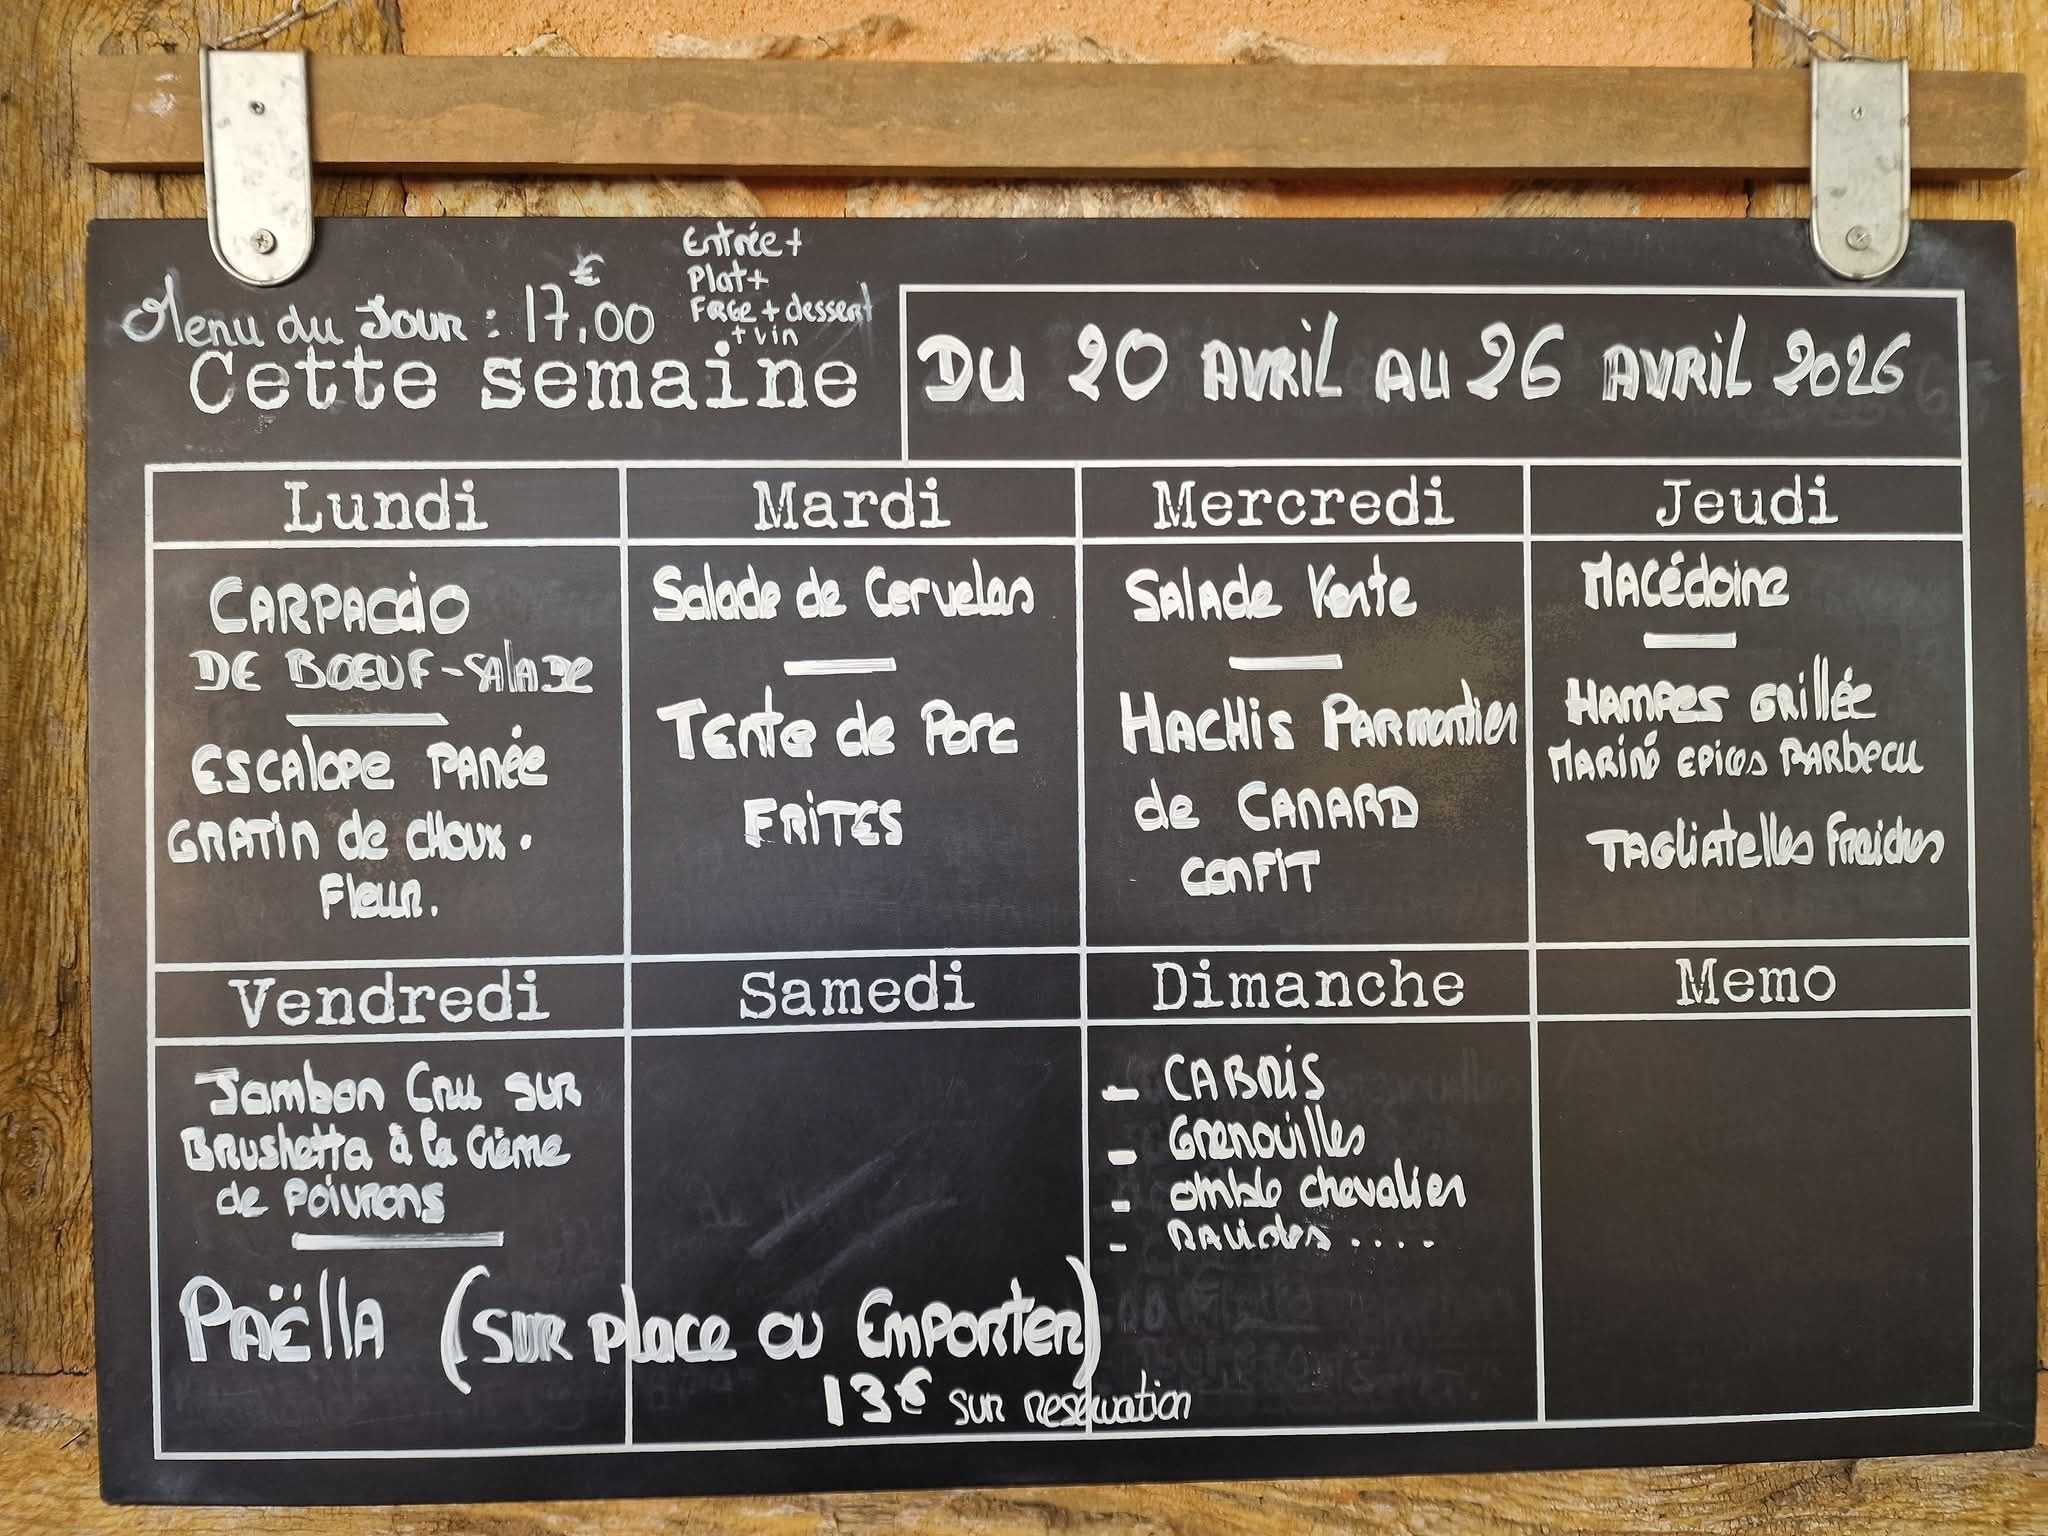 Menu du Jour : 17,00 €
Entrée +
Plat +
+ dessert
+ vin
Cette semaine
DU 20 AVRIL AU 26 AVRIL 2026
Lundi
CARPACCIO
DE BOEUF - SALADE
ESCALOPE PANÉE
GRATIN de CHOUX.
Fleur.
Mardi
Salade de Cervelas
FRITES
Mercredi
SALADE Verte
HACHIS PARMentier
de CANARD
CONFIT
Jeudi
MACÉDOINE
HAMPES GRILLÉE
MARINÉ EPICES BARBECU
TAGLIATELLES FRAICHES
Vendredi
Jambon Cru sur
Brushetta à la Crème
de POIVRONS
PAËLLA (SUR place ou EMPORTER)
13€ sur reservation
Samedi
Dimanche
- CABRIS
- GRENOUILLES
- omble chevalier
- RAVIOLES ....
Memo